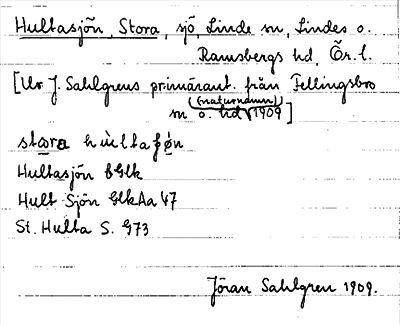 Hultasjön, Stora, sjö, Linde sn, Lindes o.
Ramsbergs hd, Ör. l.
[Ur J. Sahlgrens primäront. från Fellingsbro
(naturnamn)
sn o. hd 1909]
stωra hùltaʃǿn
Hultasjön bGlk
Hult Sjön GlkAa 47
St. Hulta S. G73
Jöran Sahlgren 1909.